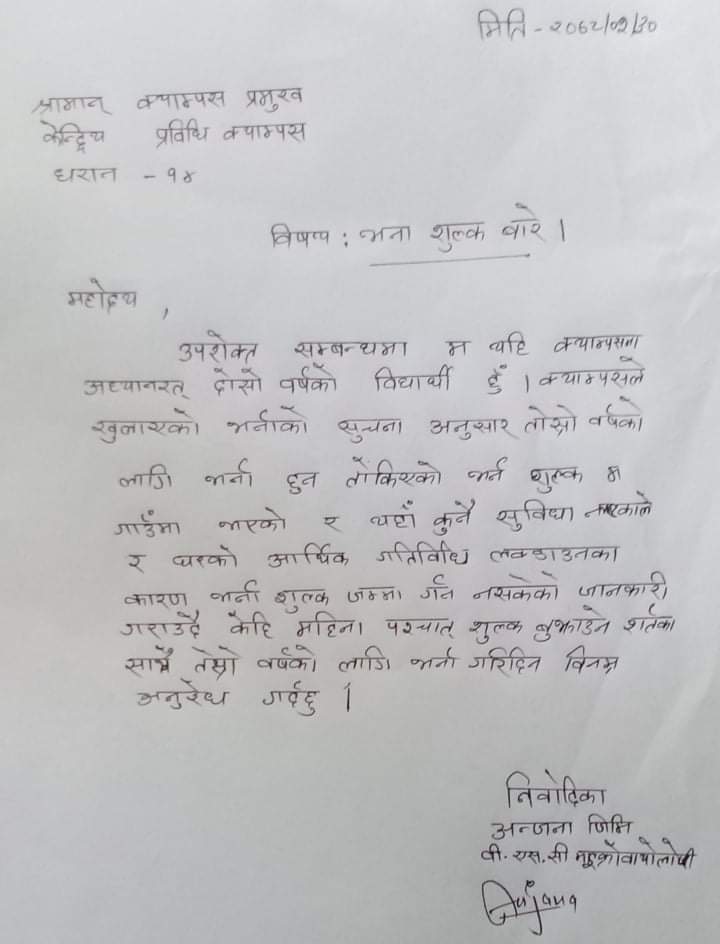 मिति - २०६८/०२/३०
श्रामान् क्याम्पस प्रमुख
केन्द्रिय प्रविधि क्याम्पस
धरान - १४
विषय : भना शुल्क बारे ।
महोदय ,
उपरोक्त सम्बन्धमा म यहि क्याम्पसमा
अध्यानरत् दोस्रो वर्षको विद्यार्थी हुँ । क्याम्पसले
खुलाएको भर्नाको सुचना अनुसार तेस्रो वर्षको
लागि भर्ना हुन तोकिएको भर्न शुल्क म
गाउँमा भएको र यहाँ कुनै सुविधा नभएकाले
र घरको आर्थिक गतिविधि लकडाउनका
कारण भर्ना शुल्क जम्मा गर्न नसकेको जानकारी
गराउदै केहि महिना पश्चात् शुल्क बुझाउने शर्तका
साथै तेस्रो वर्षको लागि भर्ना गरिदिन विनम्र
अनुरोध गर्दछु ।
निवेदिका
अन्जना जिमि
वी. एस. सी माइक्रोवायोलोजी
Anjana